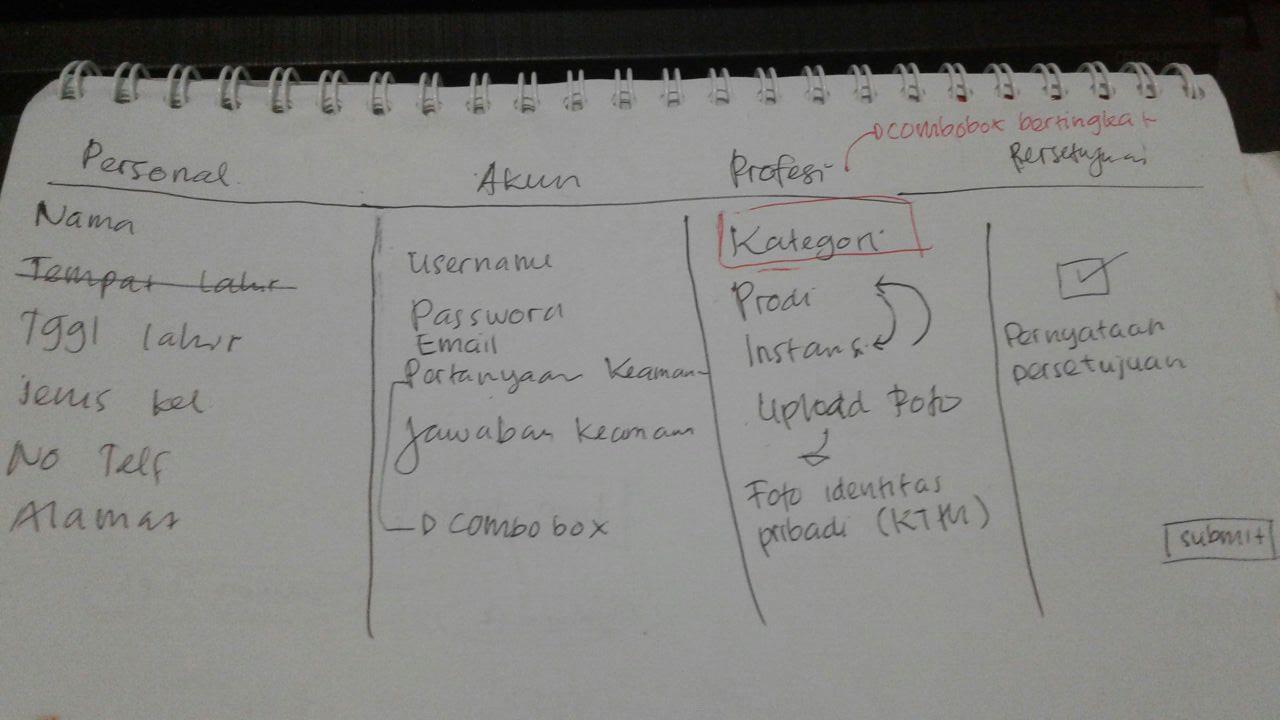 Personal
Nama
Tempat lahir
Tggl lahir
jenis kel
No Telf
Alamat
Akun
Username
Password
Email
Pertanyaan Keaman
Jawaban keaman
combobox
Profesi
combobox bertingkat
Kategori
Prodi
Instansi
Upload Foto
Foto identitas
pribadi (KTM)
Persetujuan
Pernyataan
persetujuan
submit